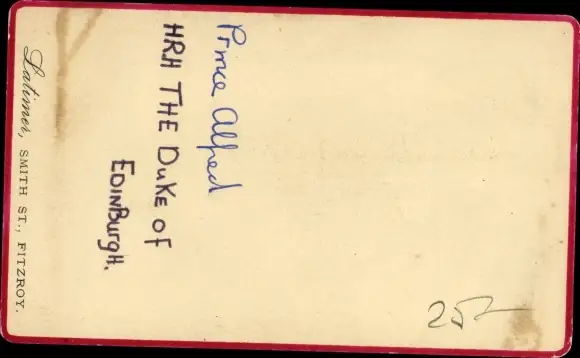 Prince Alfred
HRH THE DUKE OF
EDINBURGH.
Latimer, SMITH ST., FITZROY.